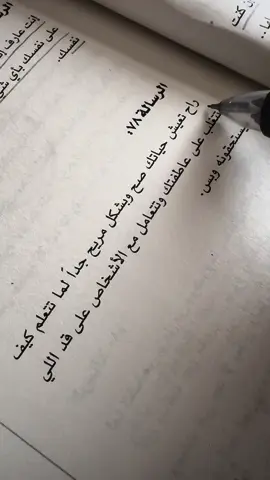 إنت عارف إن
على نفسك بأي شي
نفسك.
الرسالة ٧٨:
راح تعيش حياتك صح وبشكل مريح جداً لما تتعلم كيف
تتغلب على عاطفتك وتتعامل مع الأشخاص على قد اللي
يستحقونه وبس.